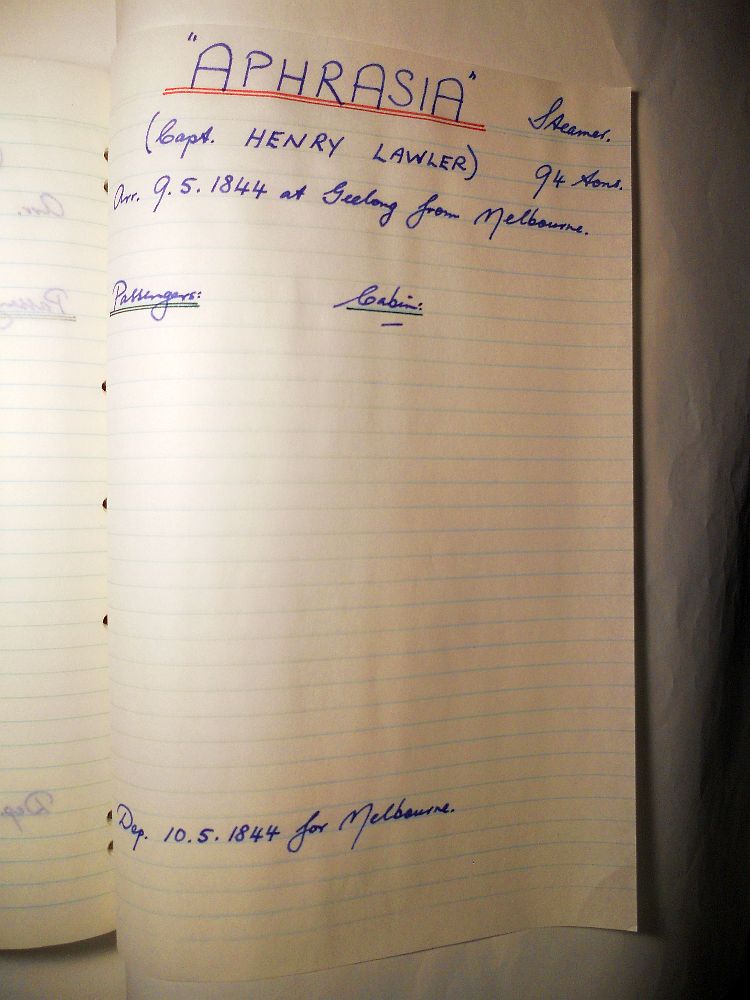 "APHRASIA"
Steamer.
(Capt. HENRY LAWLER)
94 tons.
Arr. 9.5.1844 at Geelong from Melbourne.
Passengers:
Cabin:
—
Dep. 10.5.1844 for Melbourne.